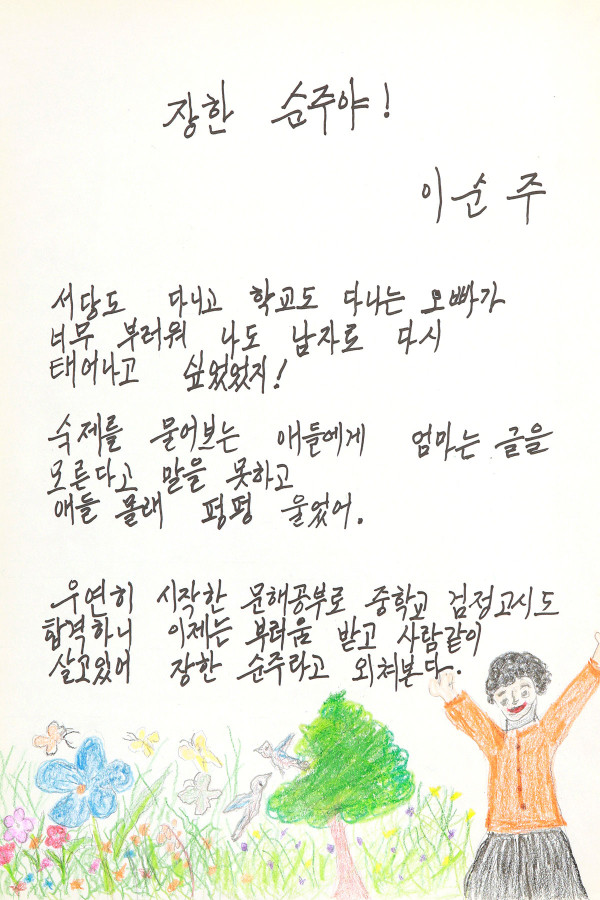 장한 순주야!
이순주
서당도 다니고 학교도 다니는 오빠가
너무 부러워 나도 남자로 다시
태어나고 싶었었지!
숙제를 물어보는 애들에게 엄마는 글을
모른다고 말을 못하고
애들 몰래 펑펑 울었어.
우연히 시작한 문해공부로 중학교 검정고시도
합격하니 이제는 부러움 받고 사람같이
살고있어 장한 순주라고 외쳐본다.